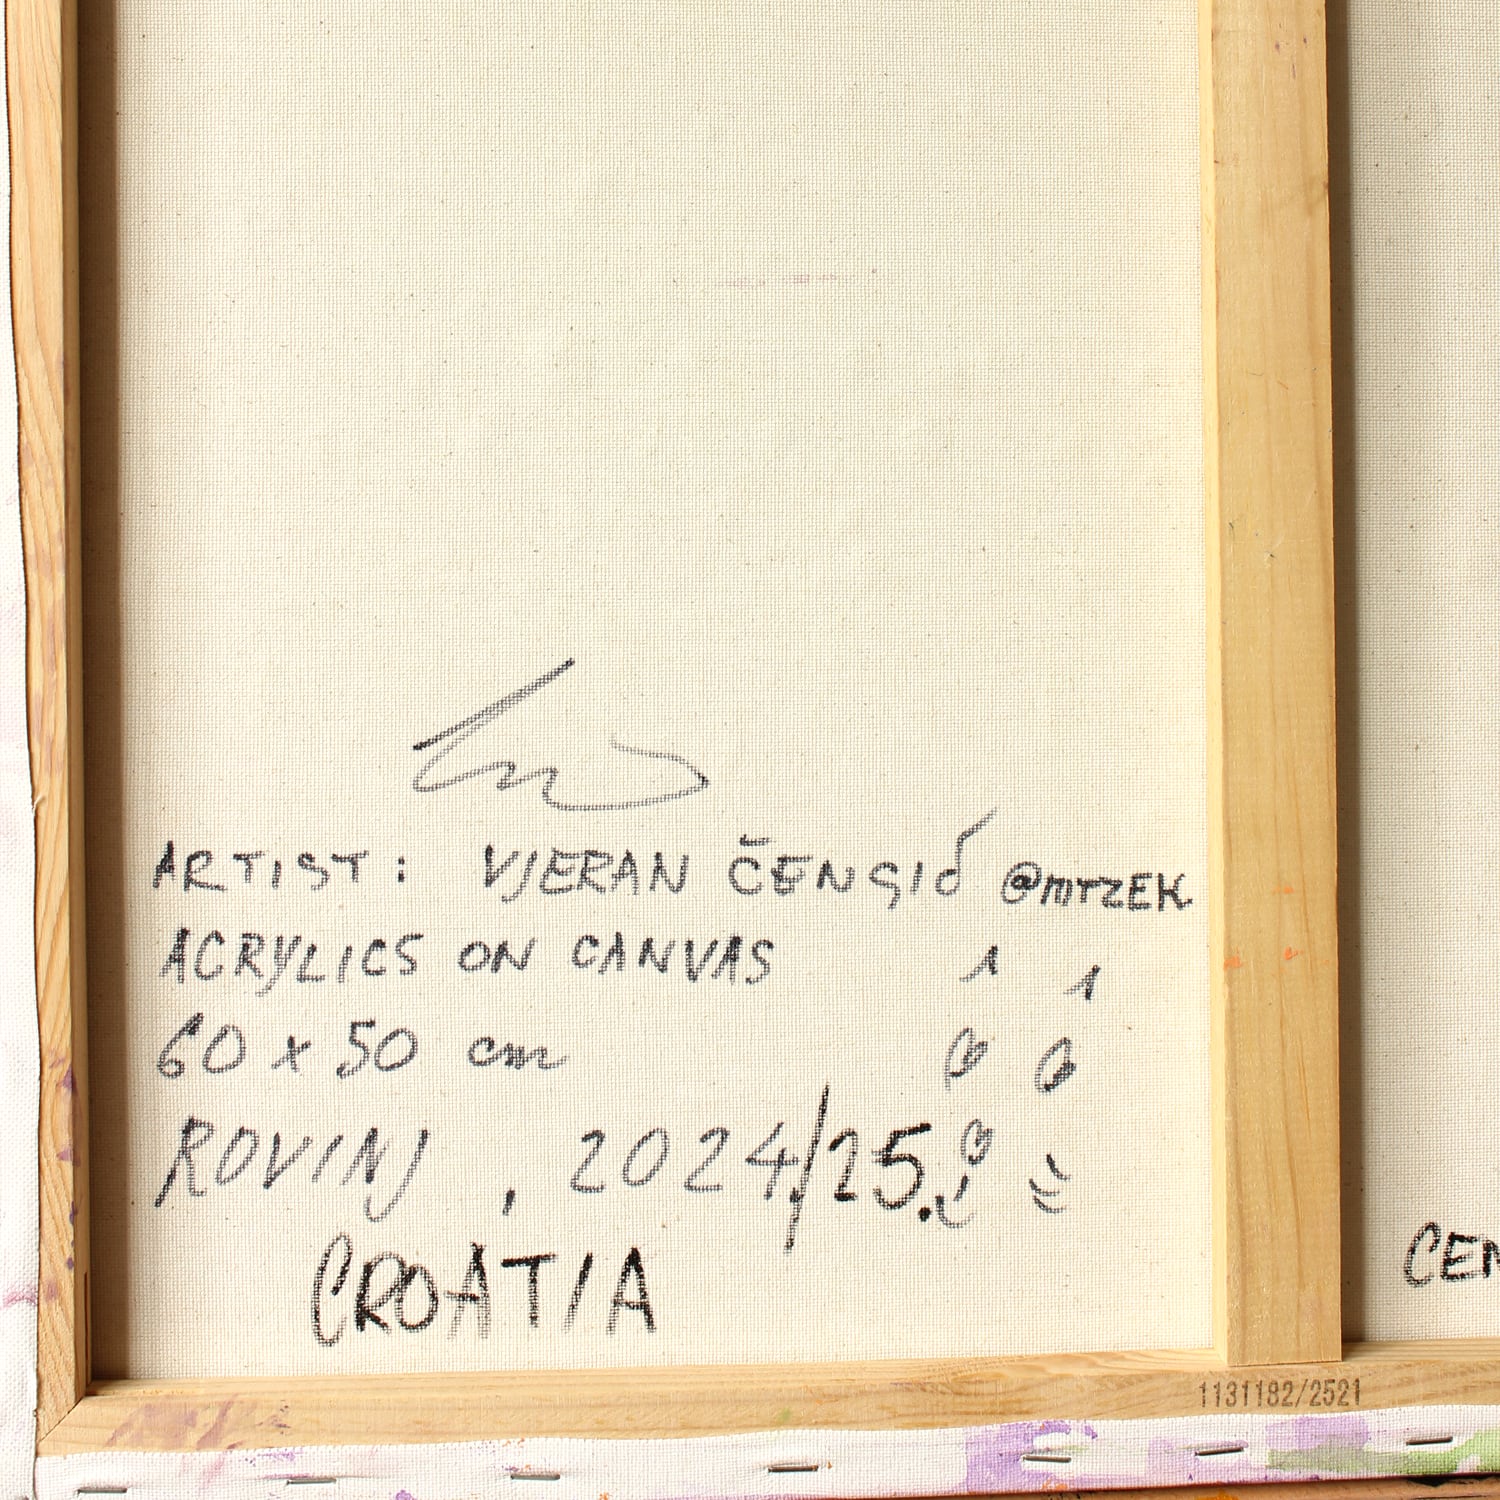 ARTIST: VJERAN ČENGIĆ @mrzEK
ACRYLICS ON CANVAS
60 x 50 cm
ROVINJ, 2024/25.
CROATIA
CEN
1131182/2521